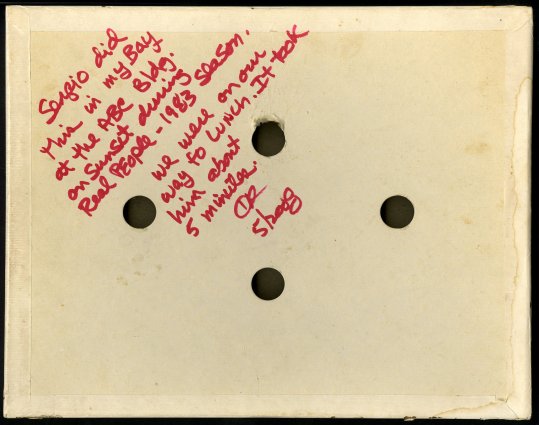 Sergio did
this in my Bay
at the ABC Bldg.
on Sunset during
Real People - 1983 season.
we were on our
way to Lunch. It took
him about
5 minutes.